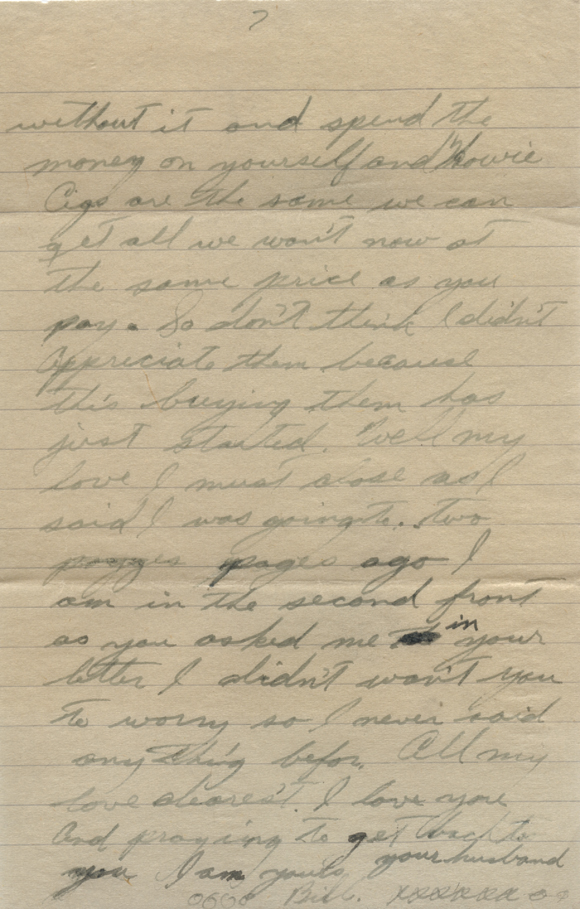 7
without it and spend the
money on yourself and Howie
Cigs are the same we can
get all we won't now at
the same price as you
pay. So don't think I didn't
appreciate them because
this buying them has
just started. Well my
love I must close as I
said I was going to.. two
pages ago I
am in the second front
as you asked me in your
letter I didn't won't you
to worry so I never said
any thing befor. All my
love dearest. I love you
and praying to get back to
you I am yours, your husband
0600 Bill. xxxxxxx